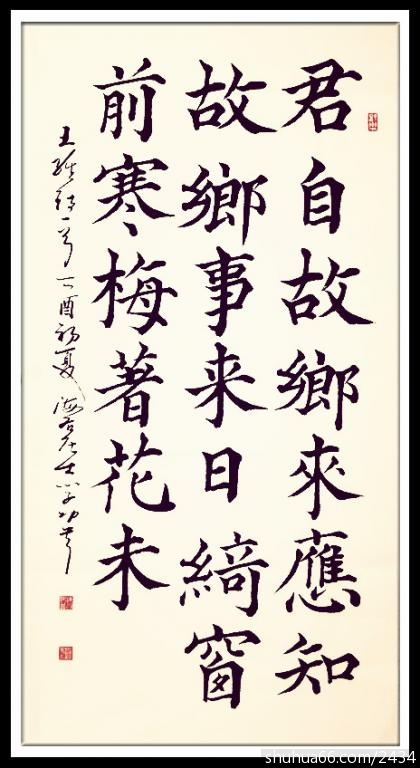 君自故鄉來應知
故鄉事来日綺窗
前寒梅著花未
王維詩一首丁酉初夏
shuhua66.com/2434